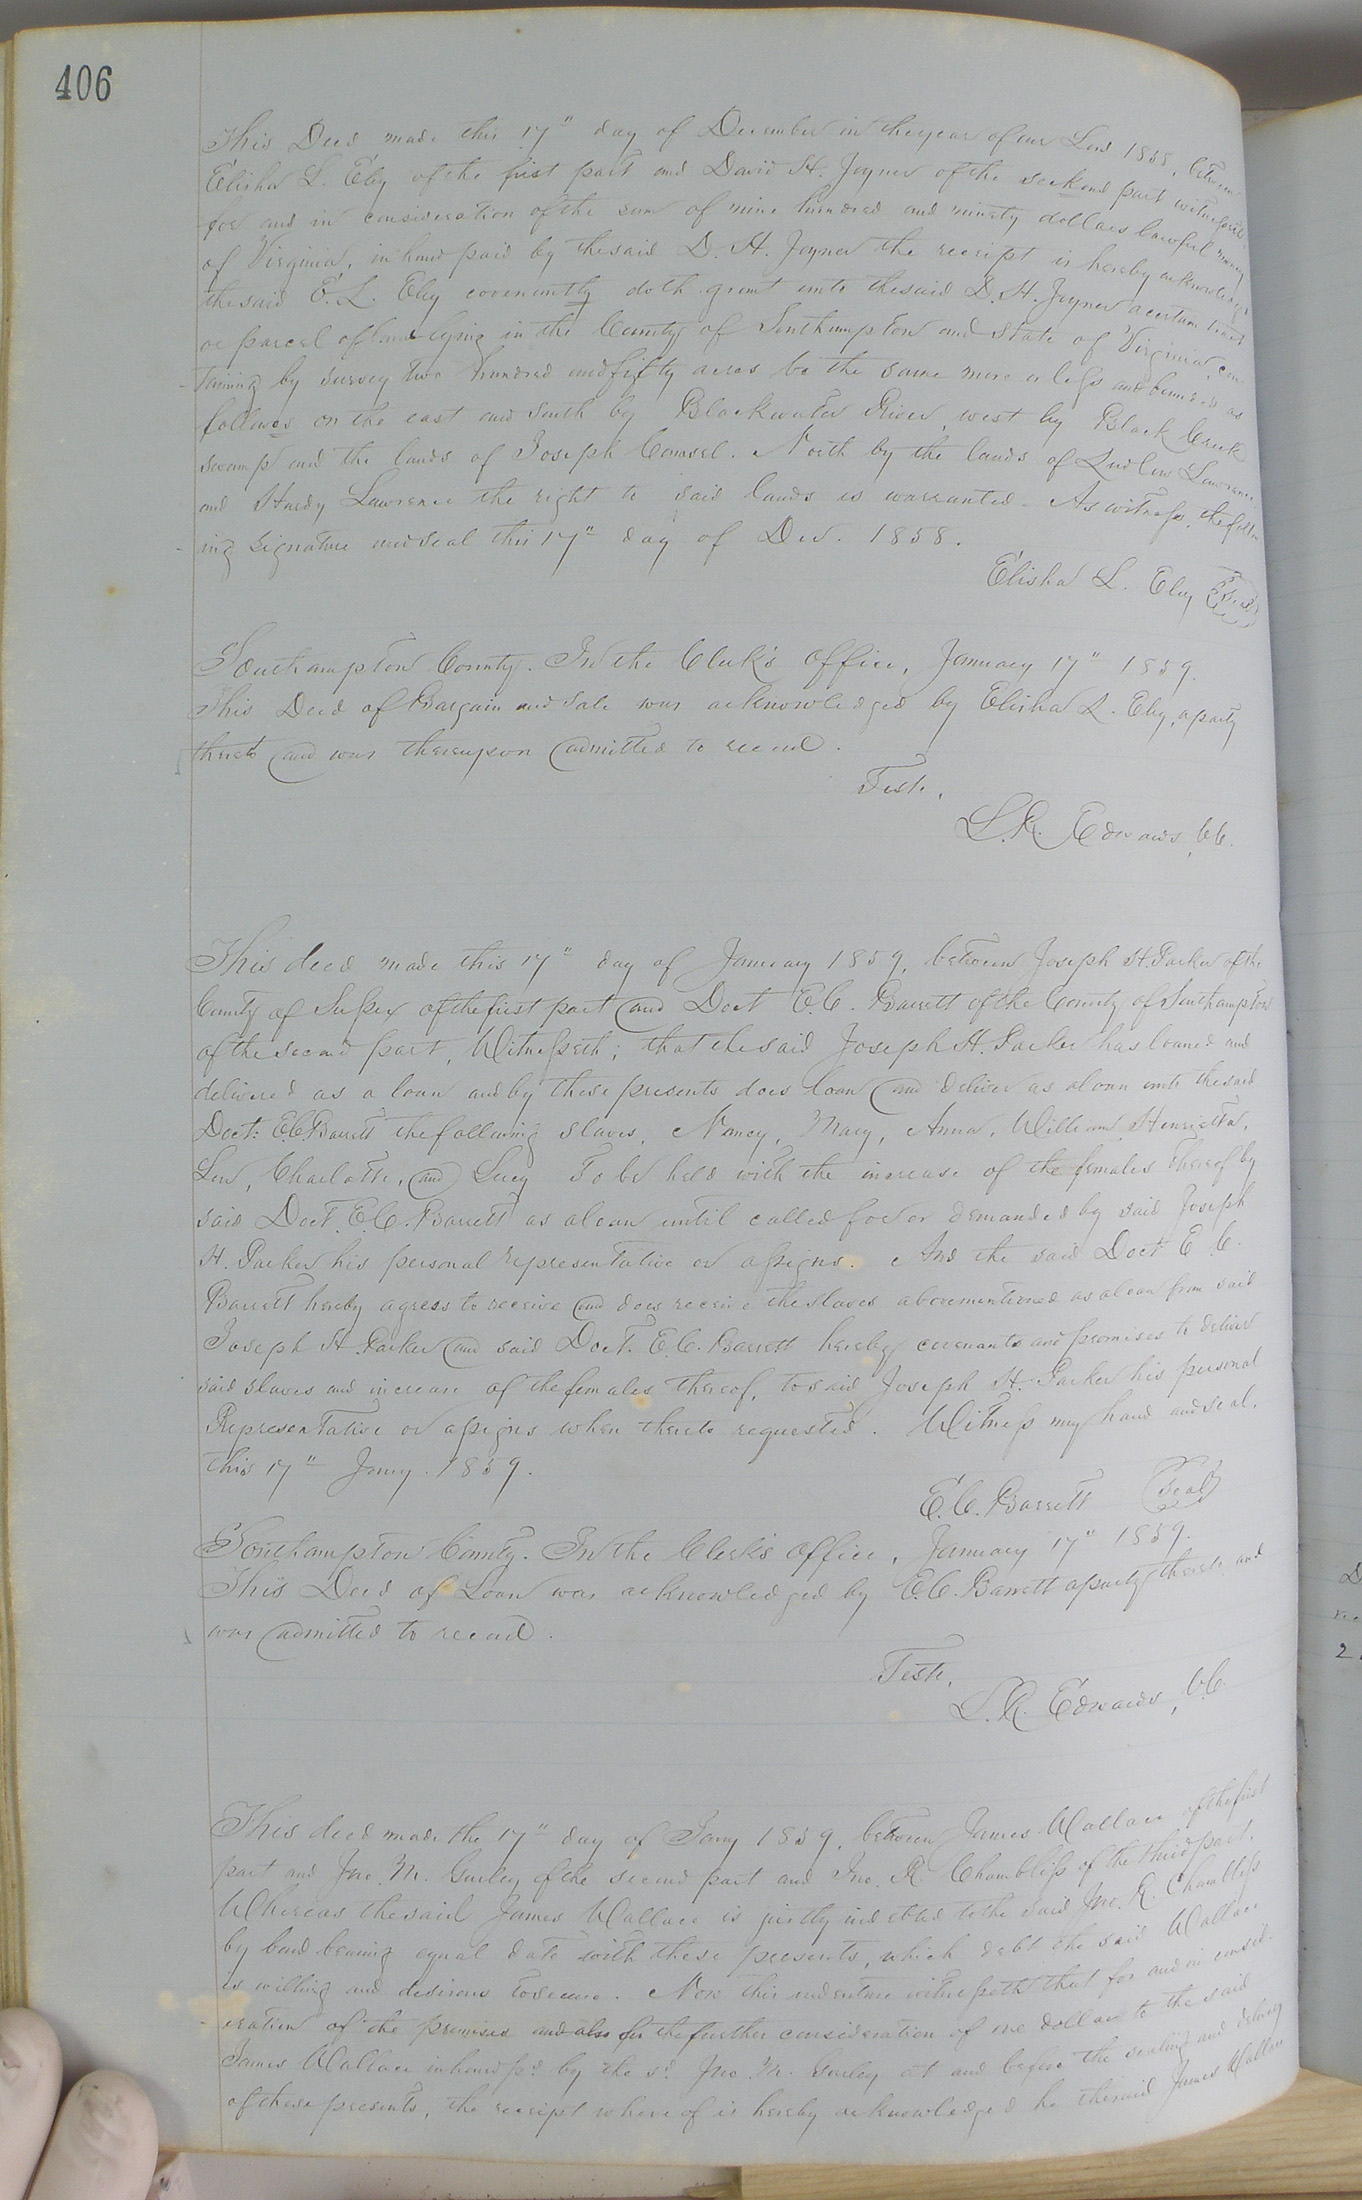 406
This Deed made this 17" day of December in the year of our Lord 1858, between
Elisha L. Eley of the first part and David H. Joyner of the seckond part witnesseth
for and in consideration of the sum of nine hundred and ninety dollars lawful money
of Virginia, in hand paid by the said D. H. Joyner the receipt is hereby acknowledged
the said E. L. Eley covenantly doth grant unto the said D. H. Joyner a certain tract
or parcel of land lying in the County of Southampton and State of Virginia, con
taining by survey two hundred and fifty acres be the same more or less and bounded as
follows on the east and south by Blackwater River, west by Black Creek
swamp and the lands of Joseph Councel. North by the lands of Ludlow Lawrence
and Hardy Lawrence the right to said lands is warranted. As witness, the follow
ing signature and seal this 17" day of Dec. 1858.
Elisha L. Eley Seal
Southampton County. In the Clerk's office, January 17" 1859.
This Deed of Bargain and Sale was acknowledged by Elisha L. Eley, a party
thereto and was thereupon admitted to record.
Teste,
L. R. Edwards, CC.
This deed made this 17" day of January 1859, between Joseph H. Parker of the
County of Sussex of the first part and Doct E. C. Barrett of the County of Southampton
of the second part, Witnesseth; that the said Joseph H. Parker has loaned and
delivered as a loan and by these presents does loan and deliver as a loan unto the said
Doct: E C Barrett the following slaves, Nancy, Mary, Anna, William, Henrietta,
Len, Charlotte, and Lucy To be held with the increase of the females thereof by
said Doct. E. C. Barrett as a loan until called for or demanded by said Joseph
H. Parker his personal representative or assigns. And the said Doct E. C.
Barrett hereby agrees to receive and does receive the slaves abovementioned as a loan from said
Joseph H. Parker and said Doct. E. C. Barrett hereby covenants and promises to deliver
said slaves and increase of the females thereof, to said Joseph H. Parker his personal
Representative or assigns when thereto requested. Witness my hand and seal,
this 17" Jany. 1859.
E. C. Barrett Seal
Southampton County. In the Clerk's office, January 17" 1859.
This Deed of Loan was acknowledged by E. C. Barrett a party thereto and
was admitted to record.
Teste,
L. R. Edwards, C.C.
This deed made the 17" day of Jany 1859, between James Wallace of the first
part and Jno. M. Gurley of the second part and Jno. R. Chambliss of the third part.
Whereas the said James Wallace is justly indebted to the said Jno. R. Chambliss
by bond bearing equal date with these presents, which debt the said Wallace
is willing and desirous to secure. Now this indenture witnesseth that for and in consid-
eration of the premises and also for the further consideration of one dollar to the said
James Wallace in hand pd. by the sd. Jno. M. Gurley at and before the sealing and delivery
of these presents, the receipt where of is hereby acknowledged he the said James Wallace